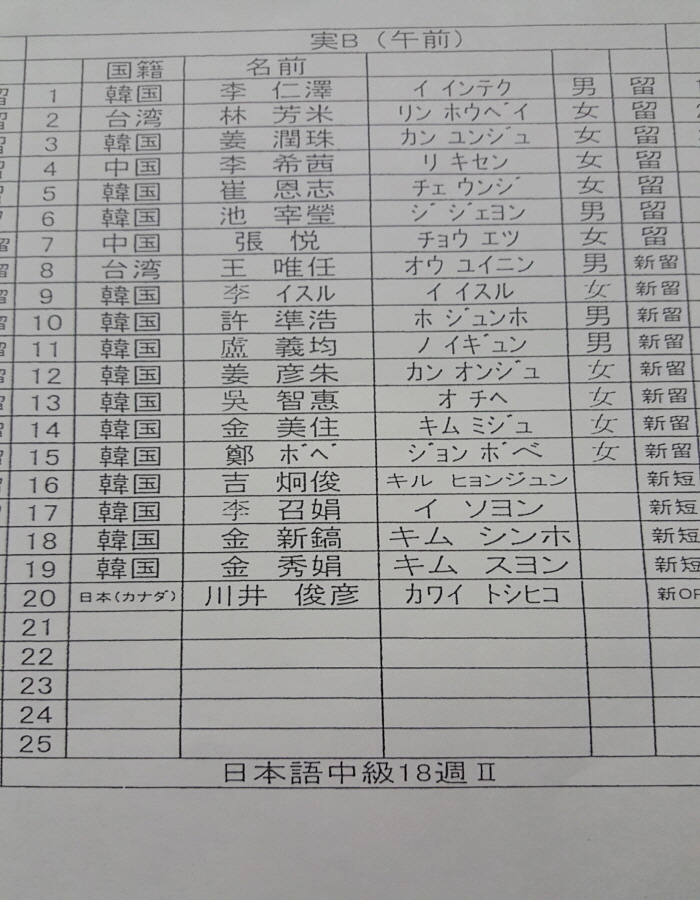 実B（午前）
国籍 名前
1 韓国 李 仁澤 イ インテク 男 留
2 台湾 林 芳米 リン ホウベイ 女 留
3 韓国 姜 潤珠 カン ユンジュ 女 留
4 中国 李 希茜 リ キセン 女 留
5 韓国 崔 恩志 チェ ウンジ 女 留
6 韓国 池 宰瑩 ジ ジェヨン 男 留
7 中国 張 悦 チョウ エツ 女 留
8 台湾 王 唯任 オウ ユイニン 男 新留
9 韓国 李 イスル イ イスル 女 新留
10 韓国 許 準浩 ホ ジュンホ 男 新留
11 韓国 盧 義均 ノ イギュン 男 新留
12 韓国 姜 彦朱 カン オンジュ 女 新留
13 韓国 吳 智惠 オ チヘ 女 新留
14 韓国 金 美住 キム ミジュ 女 新留
15 韓国 鄭 ボベ ジョン ボベ 女 新留
16 韓国 吉 炯俊 キル ヒョンジュン 新短
17 韓国 李 召娟 イ ソヨン 新短
18 韓国 金 新鎬 キム シンホ 新短
19 韓国 金 秀娟 キム スヨン 新短
20 日本(カナダ) 川井 俊彦 カワイ トシヒコ 新OP
21
22
23
24
25
日本語中級18週Ⅱ